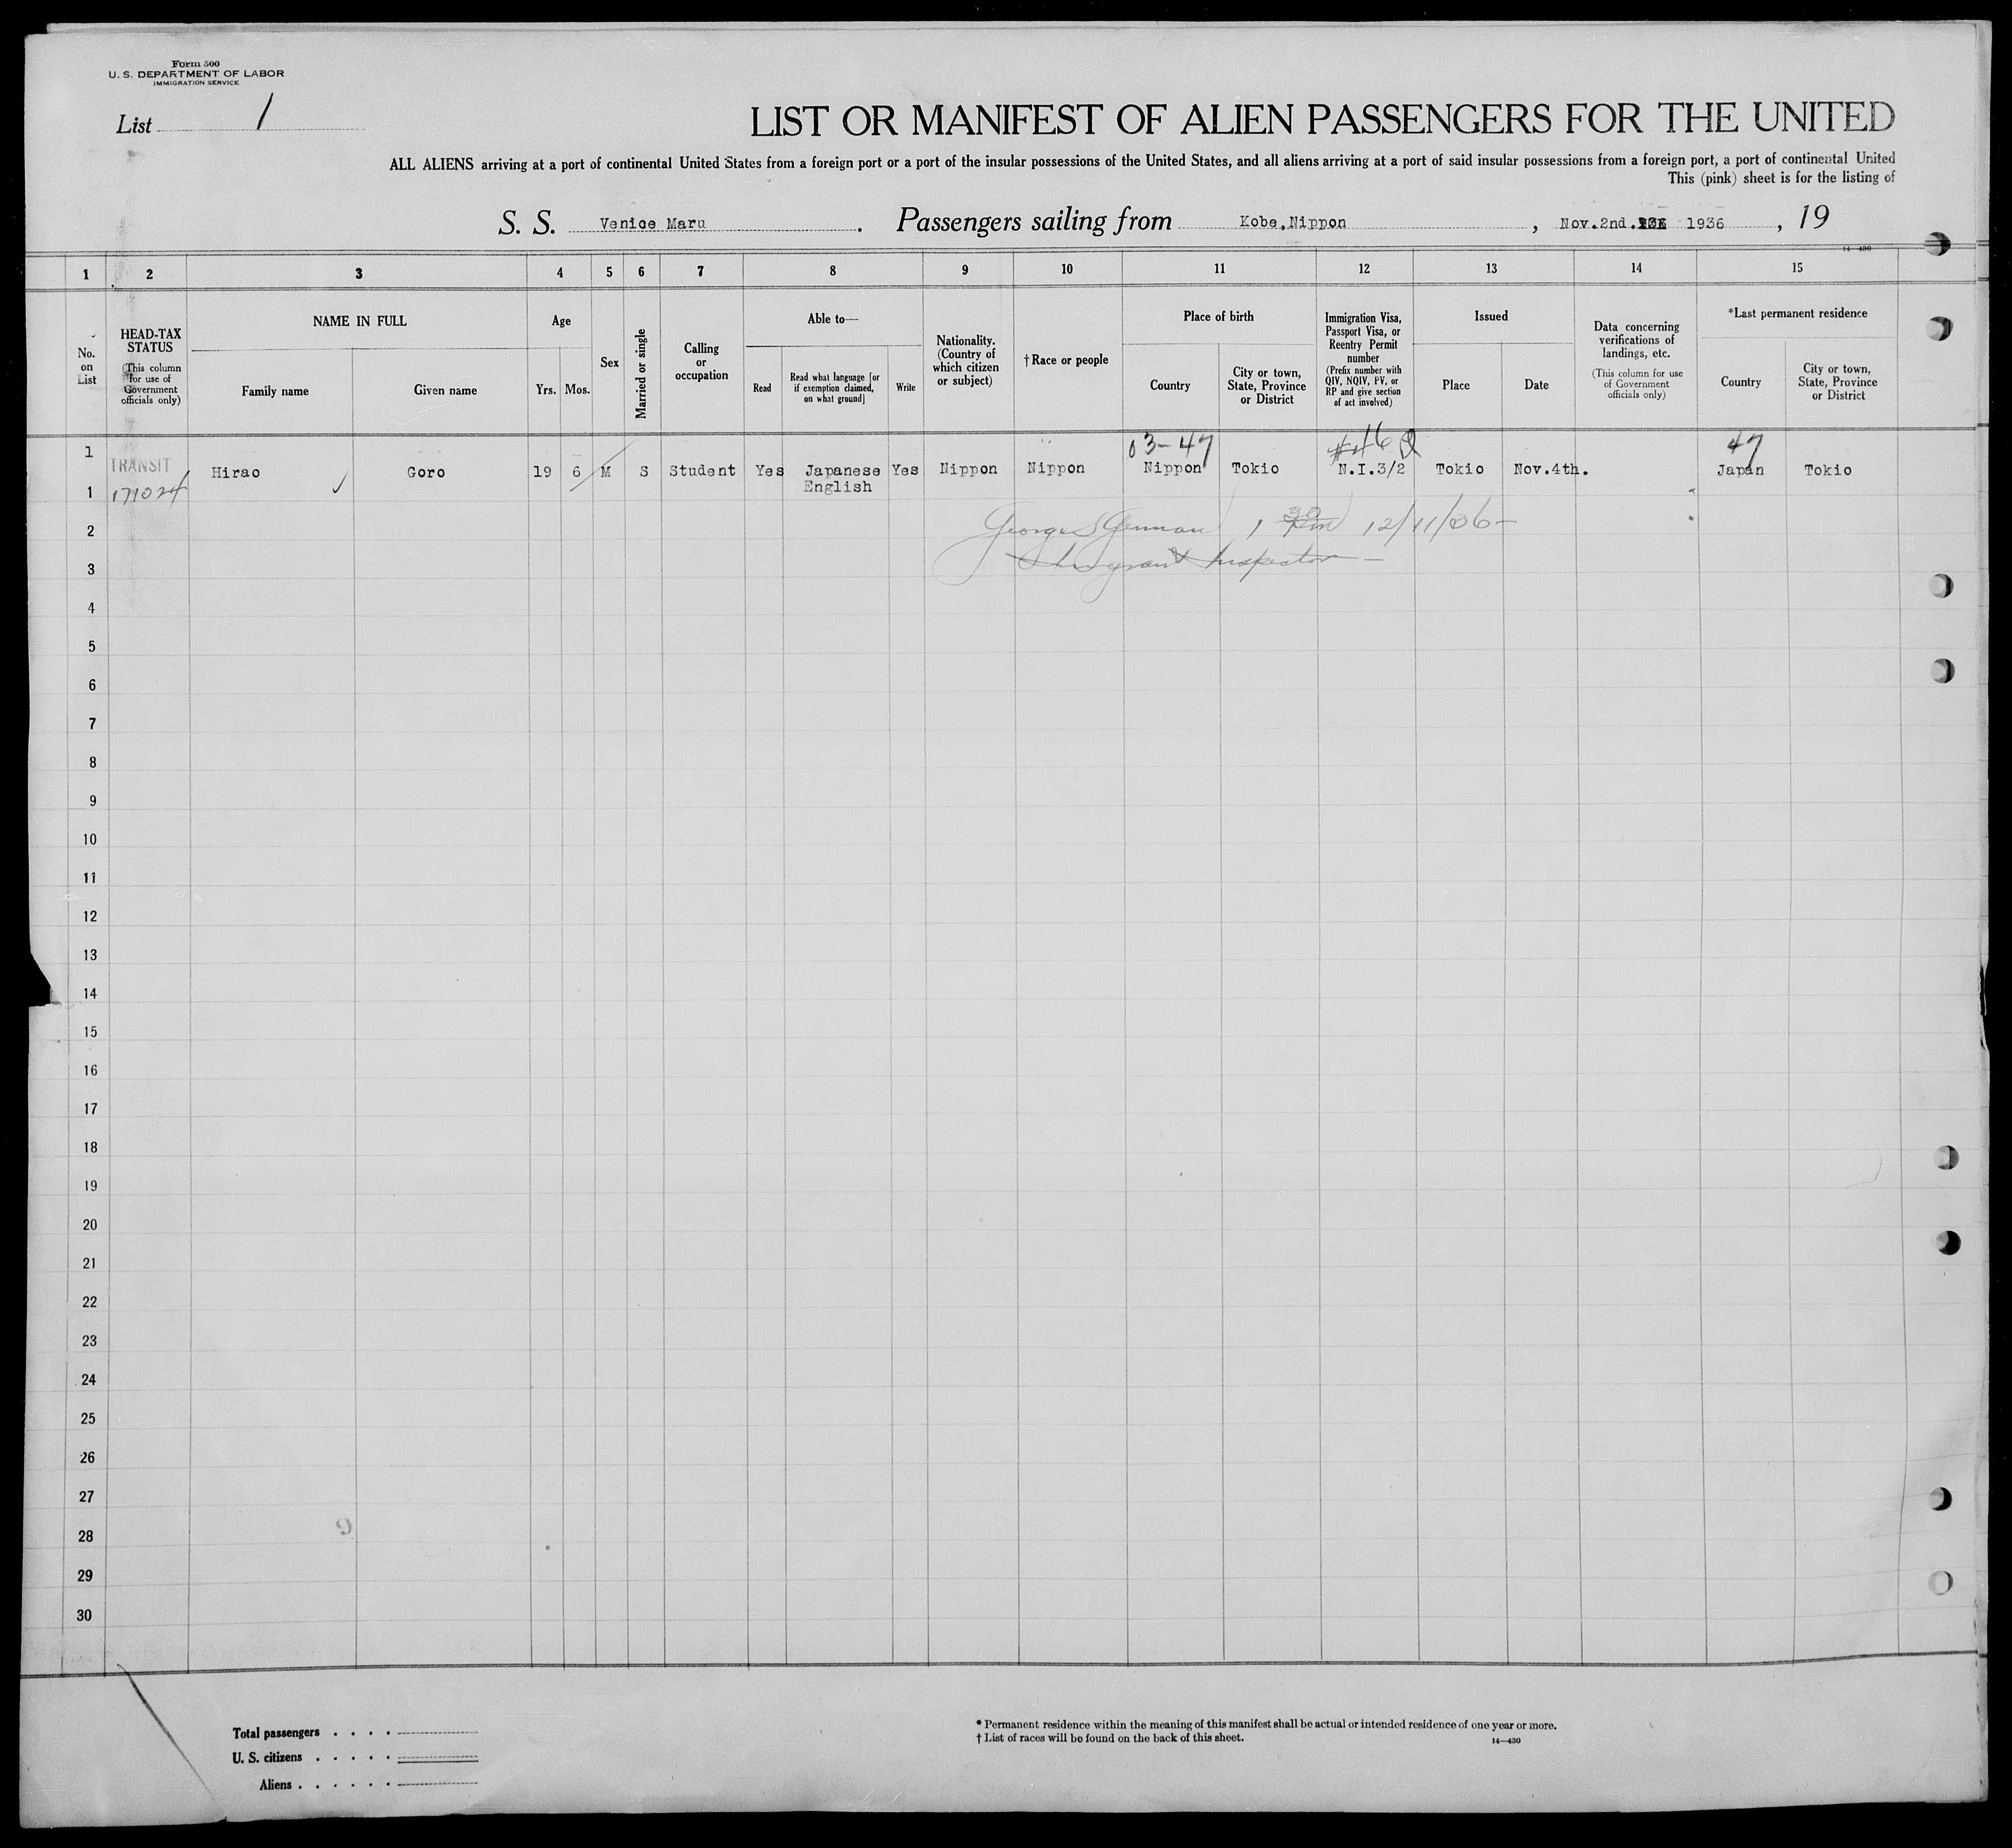 Form 500
U. S. DEPARTMENT OF LABOR
IMMIGRATION SERVICE
List 1
LIST OR MANIFEST OF ALIEN PASSENGERS FOR THE UNITED
ALL ALIENS arriving at a port of continental United States from a foreign port or a port of the insular possessions of the United States, and all aliens arriving at a port of said insular possessions from a foreign port, a port of continental United
This (pink) sheet is for the listing of
S. S. Venice Maru. Passengers sailing from Kobe,Nippon, Nov.2nd. 1936, 19
14—430
1 2 3 4 5 6 7 8 9 10 11 12 13 14 15
No. on List
HEAD-TAX STATUS
(This column for use of Government officials only)
NAME IN FULL
Family name
Given name
Age
Yrs. Mos.
Sex
Married or single
Calling or occupation
Able to—
Read
Read what language [or if exemption claimed, on what ground]
Write
Nationality. (Country of which citizen or subject)
†Race or people
Place of birth
Country
City or town, State, Province or District
Immigration Visa, Passport Visa, or Reentry Permit number
(Prefix number with QIV, NQIV, PV, or RP and give section of act involved)
Issued
Place
Date
Data concerning verifications of landings, etc.
(This column for use of Government officials only)
*Last permanent residence
Country
City or town, State, Province or District
1 03-47 47
TRANSIT Hirao Goro 19 6 M S Student Yes Japanese Yes Nippon Nippon Nippon Tokio N.I.3/2 Tokio Nov.4th. Japan Tokio
1 171024 English
2 George S 1 30 12/11/36
3 Inspector
4
5
6
7
8
9
10
11
12
13
14
15
16
17
18
19
20
21
22
23
24
25
26
27
28
29
30
Total passengers . . . .
U. S. citizens . . . . .
Aliens . . . . . .
* Permanent residence within the meaning of this manifest shall be actual or intended residence of one year or more.
† List of races will be found on the back of this sheet.
14—430